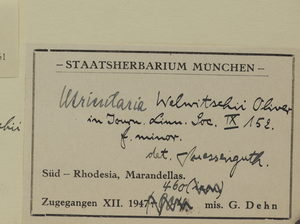 – STAATSHERBARIUM MÜNCHEN –
Utricularia Welwitschii Oliver
in Journ. Linn. Soc. IX 152.
f. minor.
det. Suessenguth.
Süd – Rhodesia, Marandellas.
460
Zugegangen XII. 1947 mis. G. Dehn